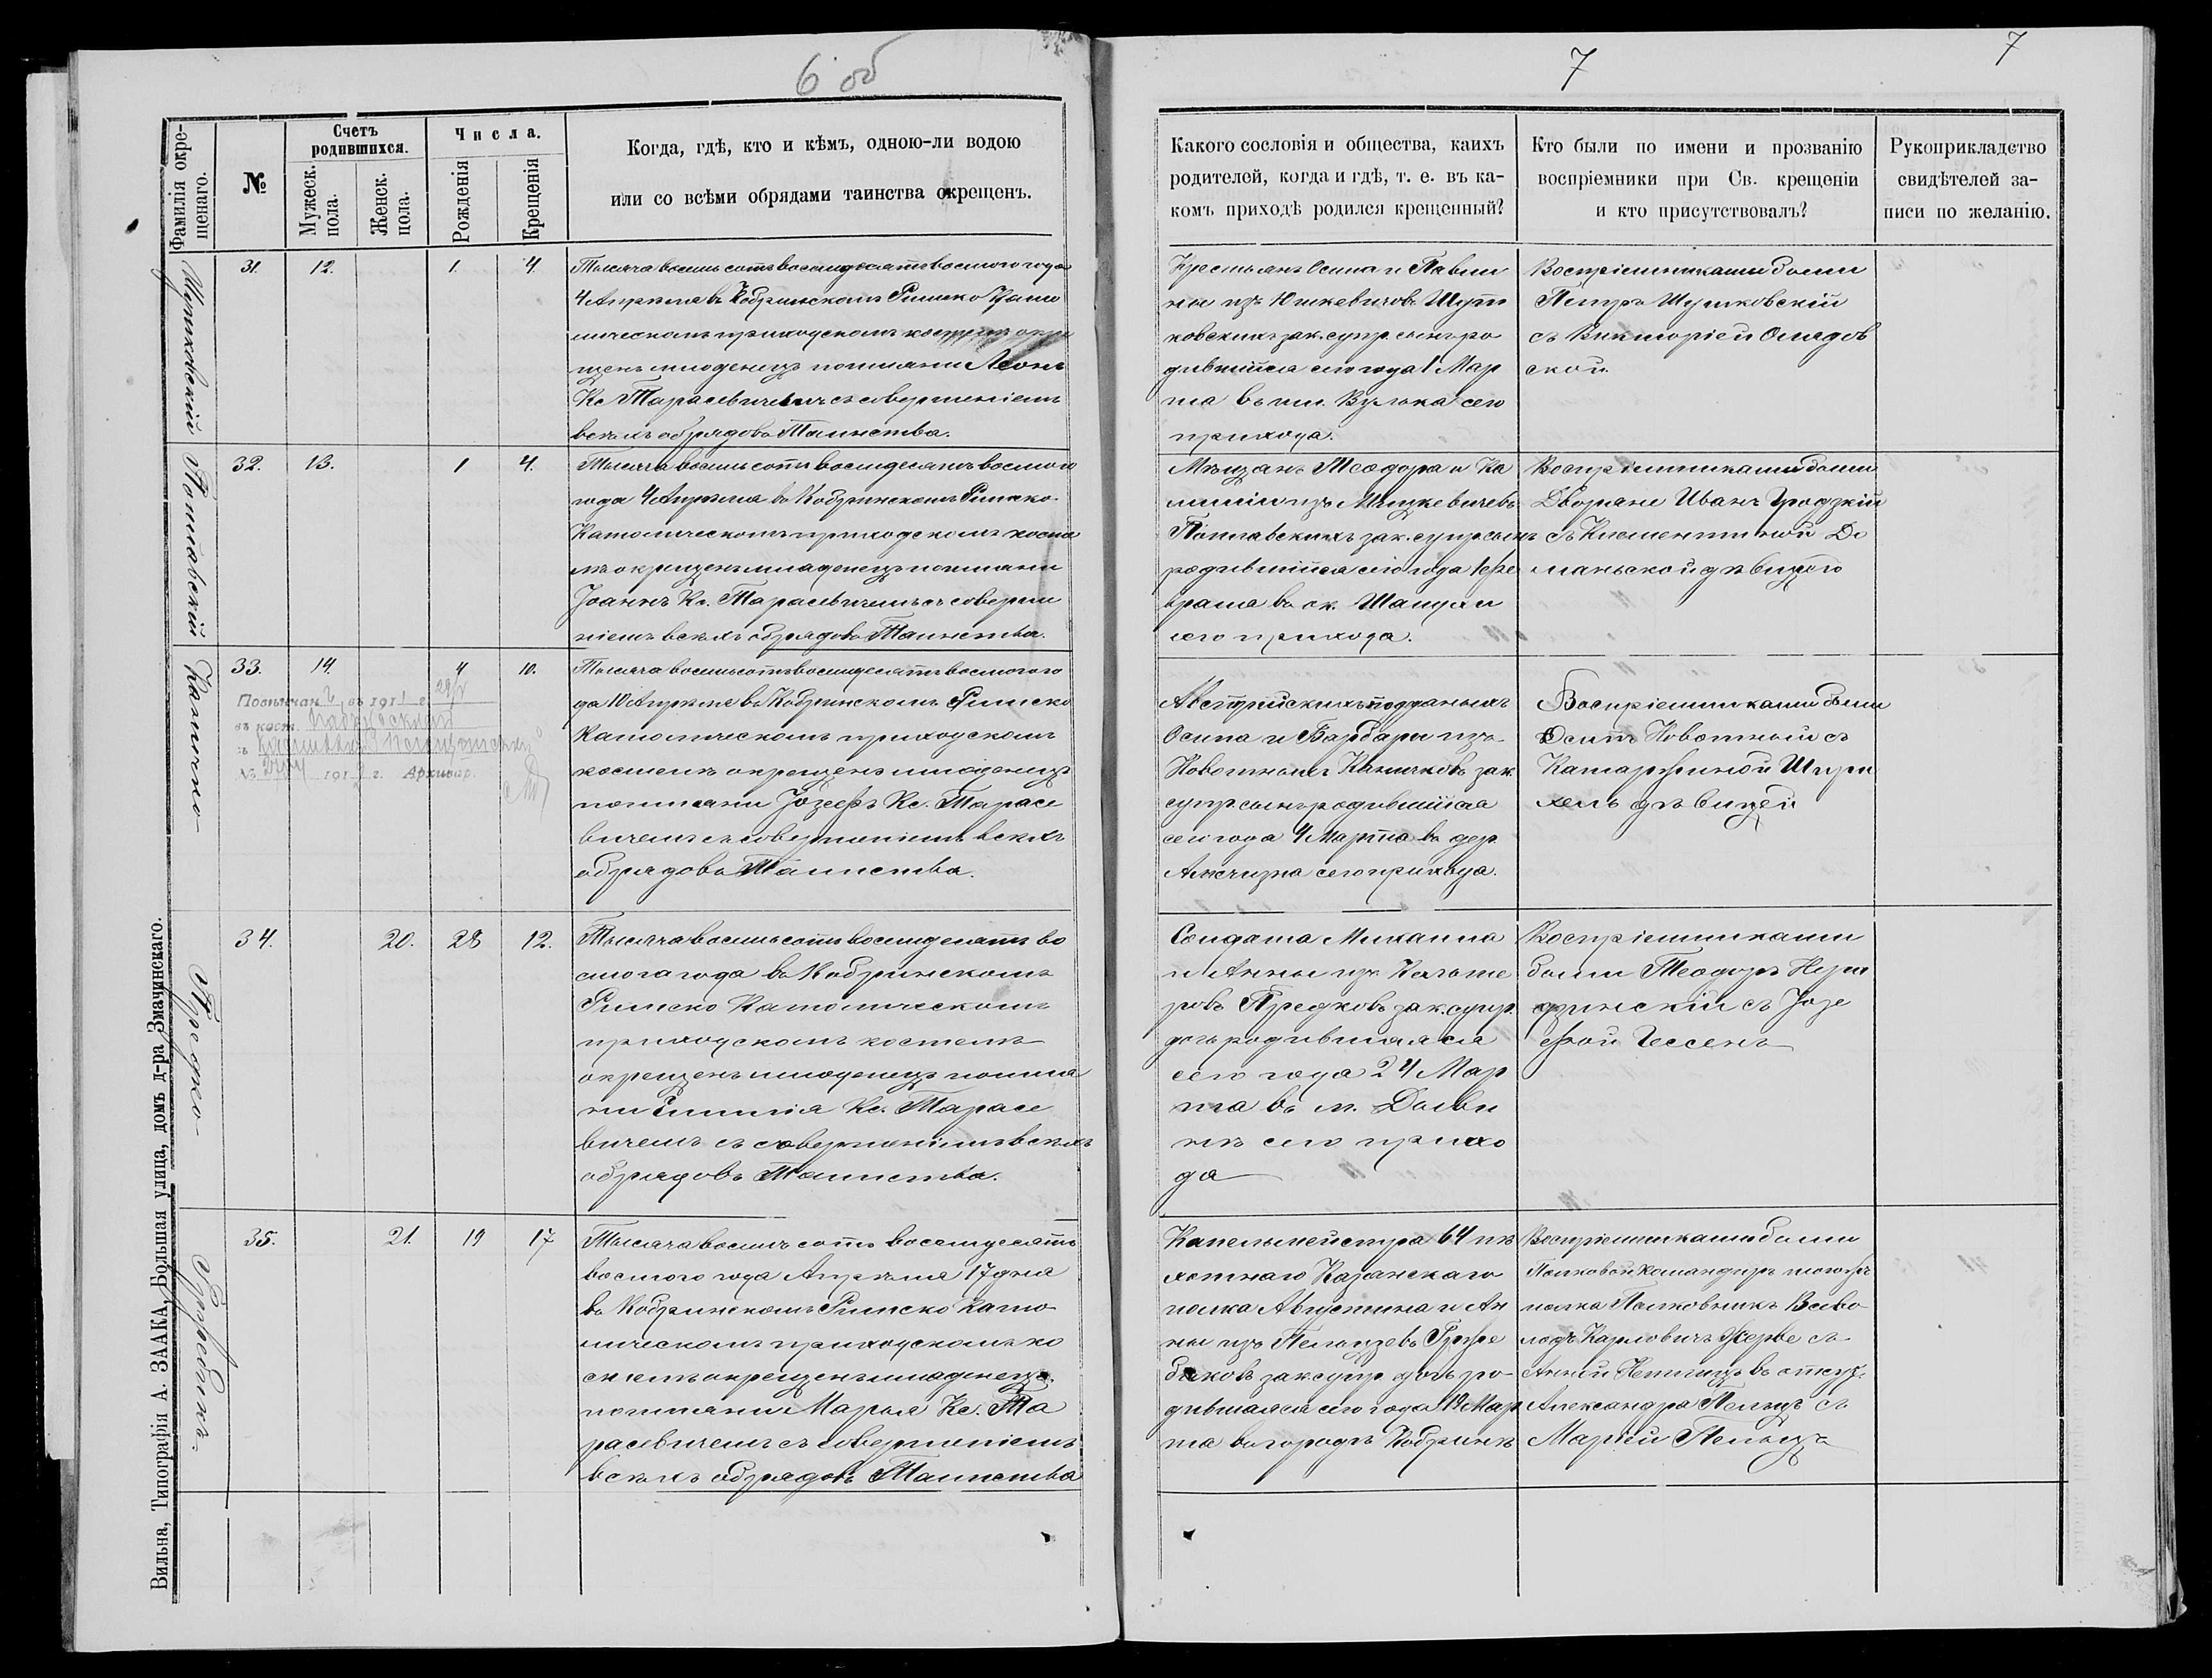 6 об
7
7
Фамилія окре-
щенаго.
№
Счетъ
родившихся.
Мужеск.
пола.
Женск.
пола.
Числа.
Рожденія
Крещенія
Когда, гдѣ, кто и кѣмъ, одною-ли водою
или со всѣми обрядами таинства окрещенъ.
Какого сословія и общества, каихъ
родителей, когда и гдѣ, т. е. въ ка-
комъ приходѣ родился крещенный?
Кто были по имени и прозванію
воспріемники при Св. крещеніи
и кто присутствовалъ?
Рукоприкладство
свидѣтелей за-
писи по желанію.
Шутковскій
31.
12.
1.
4.
Тысяча восемь сотъ восемдесятъ восмого года
4 Апрѣля въ Кобринскомъ Римско Като
лическомъ приходскомъ костелѣ окре
щенъ младенецъ поимяни Леонъ
Кс. Тарасевичемъ съ совершеніемъ
всѣхъ обрядовъ Таинства.
Крестьянъ Осипа и Павли
ны изъ Юшкевичовъ Шут
ковскихъ зак. супр. сынъ ро
дившійся сего года 1 Мар
та въ им. Вулька сего
прихода.
Воспріемниками были
Петръ Шутковскій
съ Викторіей
ской
Поплавскій
32.
13.
1
4.
Тысяча восемь сотъ восемдесятъ восмого
года 4 Апрѣля въ Кобринскомъ Римско-
Католическомъ приходскомъ косте
лѣ окрещенъ младенецъ поимяни
Іоаннъ Кс. Тарасевичемъ съ соверше
ніемъ всѣхъ обрядовъ Таинства.
Мѣщанъ Теодора и Ка
миліи изъ Мицкевичевъ
Поплавскихъ зак. супр. сынъ
родившійся сего года 1 Фе
враля въ ок.
сего прихода.
Воспріемниками были
Дворяне Иванъ Гродзкій
съ Клементиной До
маньской дѣвицею
Канючко
33.
14.
4
10.
Повѣнчан въ 191 г.
въ кост.
съ
№ 191 г. Архивар.
Тысяча восемьсотъ восемдесятъ восмого го
да 10 Апрѣля въ Кобринскомъ Римско
Католическомъ приходскомъ
костелѣ окрещенъ младенецъ
поимяни Іозефъ Кс. Тарасе
вичемъ съ совершеніемъ всѣхъ
обрядовъ Таинства.
Австрійскихъ подданыхъ
Осипа и Барбары изъ
Новотныхъ Канючковъ зак.
супр. сынъ родившійся
сего года 4 Марта въ дер.
сего прихода.
Воспріемниками были
Осипъ Новотный съ
Катаржиной
дѣвицей
Предко
34.
20.
28
12.
Тысяча восемь сотъ восемдесятъ во
смога года въ Кобринскомъ
Римско Католическомъ
приходскомъ костелѣ
окрещенъ младенецъ поимя
ни Эмилія Кс. Тарасе
вичемъ съ совершеніемъ всѣхъ
обрядовъ Таинства.
Солдата Михаила
и Анны изъ
Предковъ зак. супр.
дочь родившаяся
сего года 24 Мар
та въ м. Дыви
нѣ сего прихо
да
Воспріемниками
были Теодоръ
съ Юзе
фой Чессекъ
35.
21.
19
17
Тысяча восемь сотъ восемдесятъ
восмого года Апрѣля 17 дня
въ Кобринскомъ Римско Като
лическомъ приходскомъ ко
стелѣ окрещенъ младенецъ
поимяни Марья Кс. Та
расевичемъ съ совершеніемъ
всѣхъ обрядовъ Таинства
Капельмейстра 64 пѣ
хотнаго Казанскаго
полка Августина и Ан
ны изъ Пельцевъ
зак. супр. дочь ро-
дившаяся сего года 19 Мар
та въ городѣ Кобринѣ
Воспріемниками были
Полковой Командиръ тогожъ
полка Полковникъ Всево
лодъ Карловичъ Жерве съ
Анной въ отсут.
Александра Пельцъ съ
Маріей Пельцъ
Вильна, Типографія А. ЗААКА, Большая улица, домъ д-ра Змачинскаго.